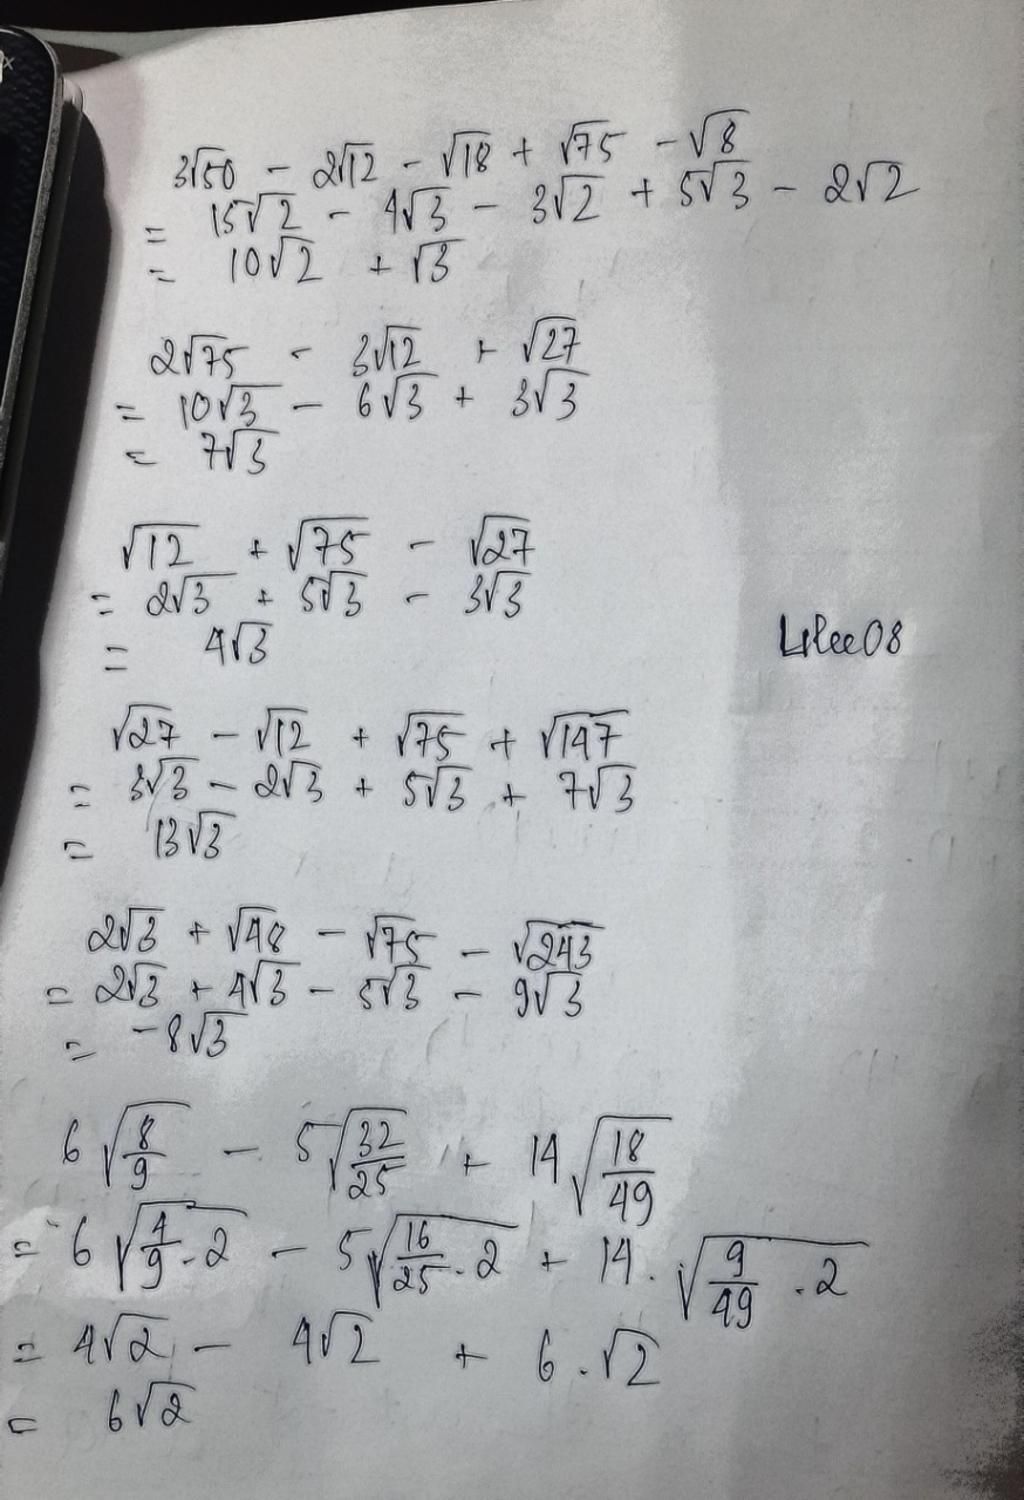 3√50 - 2√12 - √18 + √75 - √8
= 15√2 - 4√3 - 3√2 + 5√3 - 2√2
= 10√2 + √3
2√75 - 3√12 + √27
= 10√3 - 6√3 + 3√3
= 7√3
√12 + √75 - √27
= 2√3 + 5√3 - 3√3
= 4√3
LHee08
√27 - √12 + √75 + √147
= 3√3 - 2√3 + 5√3 + 7√3
= 13√3
2√3 + √48 - √75 - √243
= 2√3 + 4√3 - 5√3 - 9√3
= -8√3
6√(8/9) - 5√(32/25) + 14√(18/49)
= 6√(4/9 . 2) - 5√(16/25 . 2) + 14. √(9/49 . 2)
= 4√2 - 4√2 + 6.√2
= 6√2